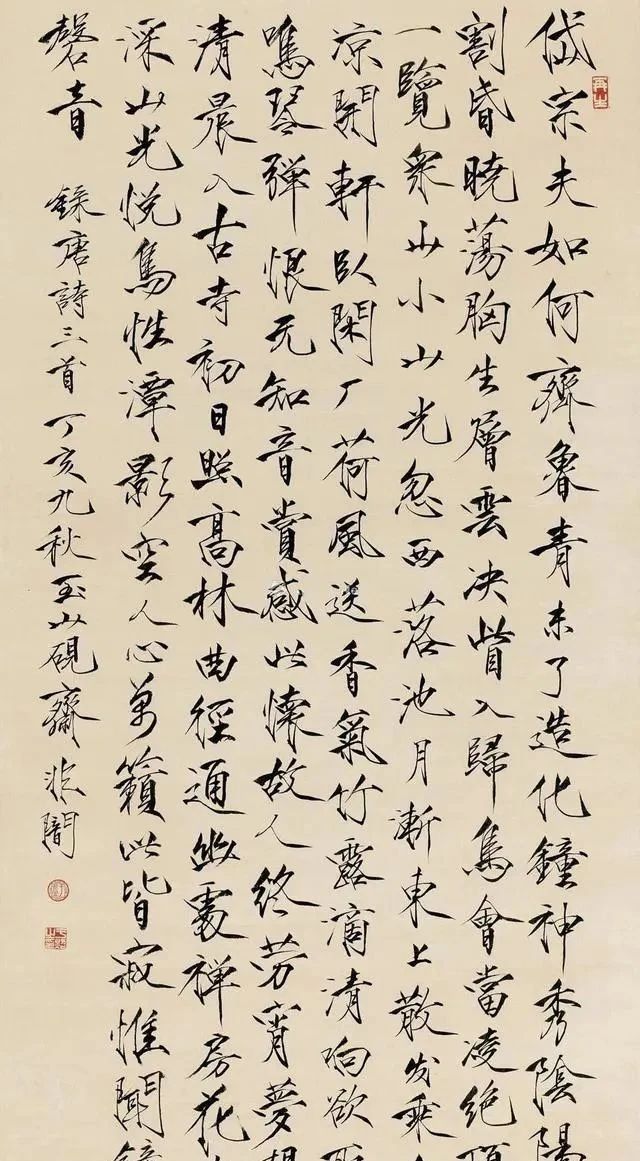 岱宗夫如何齊魯青未了造化鐘神秀陰陽
割昏曉蕩胸生層雲決眥入歸鳥會當凌絕頂
一覽衆山小山光忽西落池月漸東上散发乘
凉開軒臥閑厂荷風送香氣竹露滴清响欲取
鳴琴彈恨无知音賞感此懷故人終劳宵夢想
清晨入古寺初日照高林曲徑通幽處禅房花
深山光悦鳥性潭影空人心萬籟此皆寂惟聞鐘
磬音 錄唐詩三首丁亥九秋玉山硯齋非闇